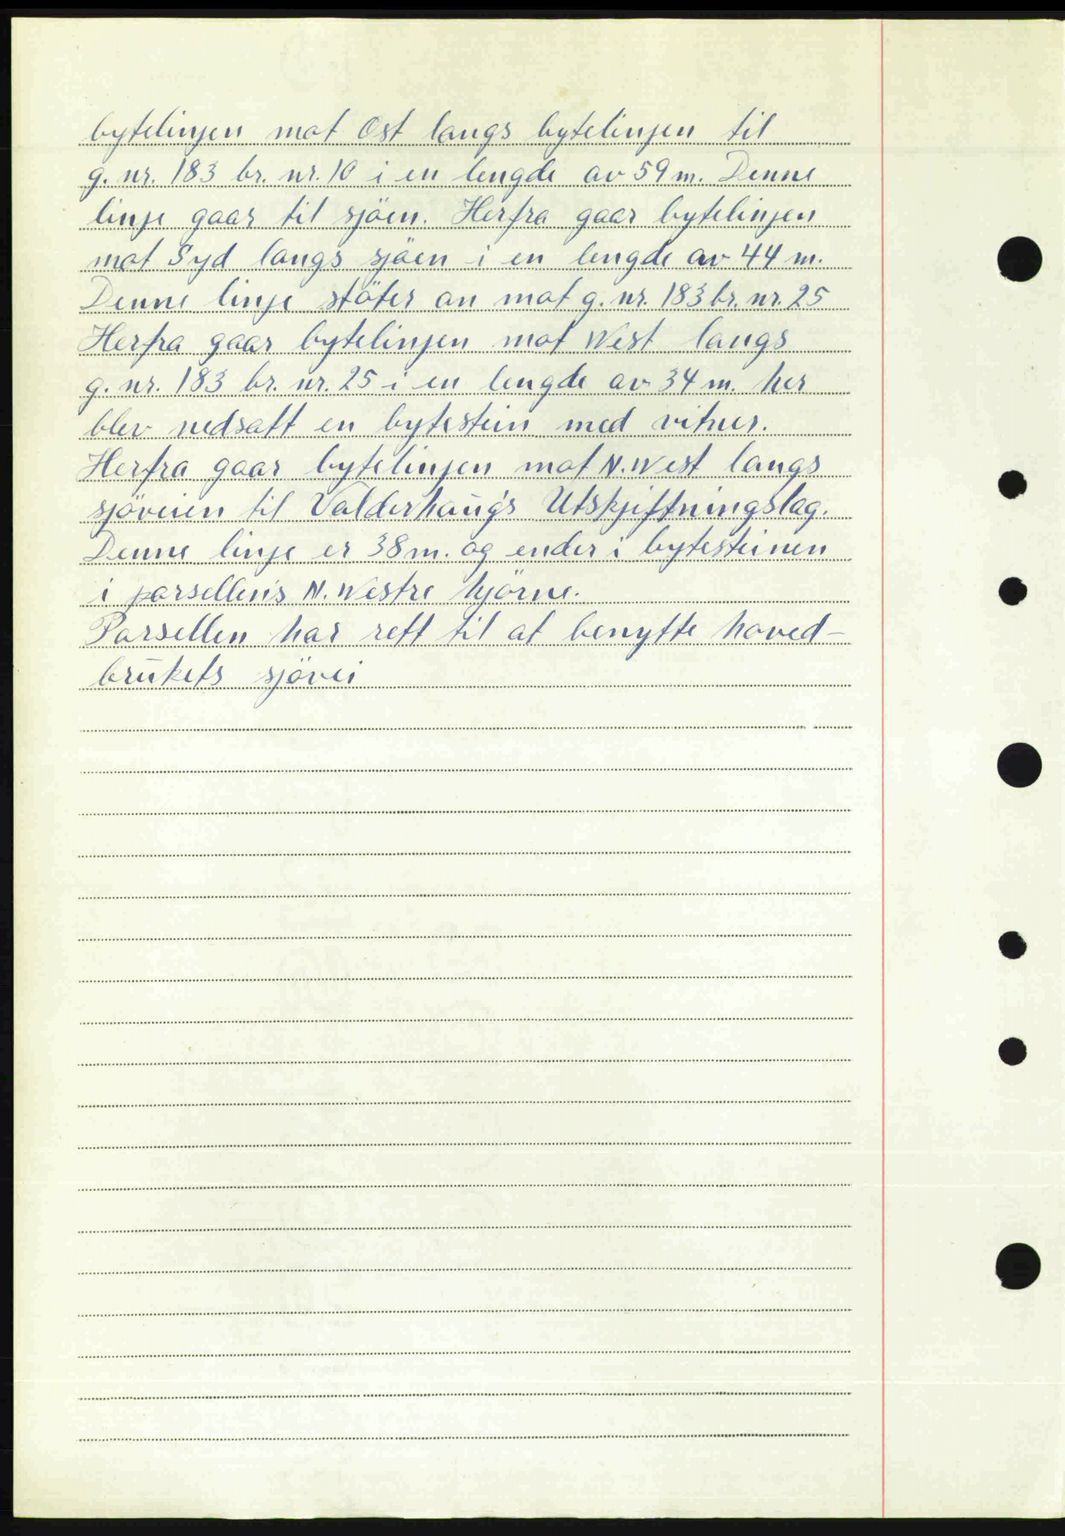 bytelinjen mot Øst langs bytelinjen til
g. nr. 183 br. nr. 10 i en lengde av 59 m. Denne
linje gaar til sjöen. Herfra gaar bytelinjen
mot Syd langs sjöen i en lengde av 44 m.
Denne linje stöter an mot g. nr. 183 br. nr. 25
Herfra gaar bytelinjen mot West langs
g. nr. 183 br. nr. 25 i en lengde av 34 m. her
blev nedsatt en bytestein med vitner.
Herfra gaar bytelinjen mot N. West langs
sjöveien til Valderhaug's Utskjiftningslag.
Denne linje er 38 m. og ender i bytesteinen
i parsellen's N. Westre hjörne.
Parsellen har rett til at benytte hoved-
brukets sjövei